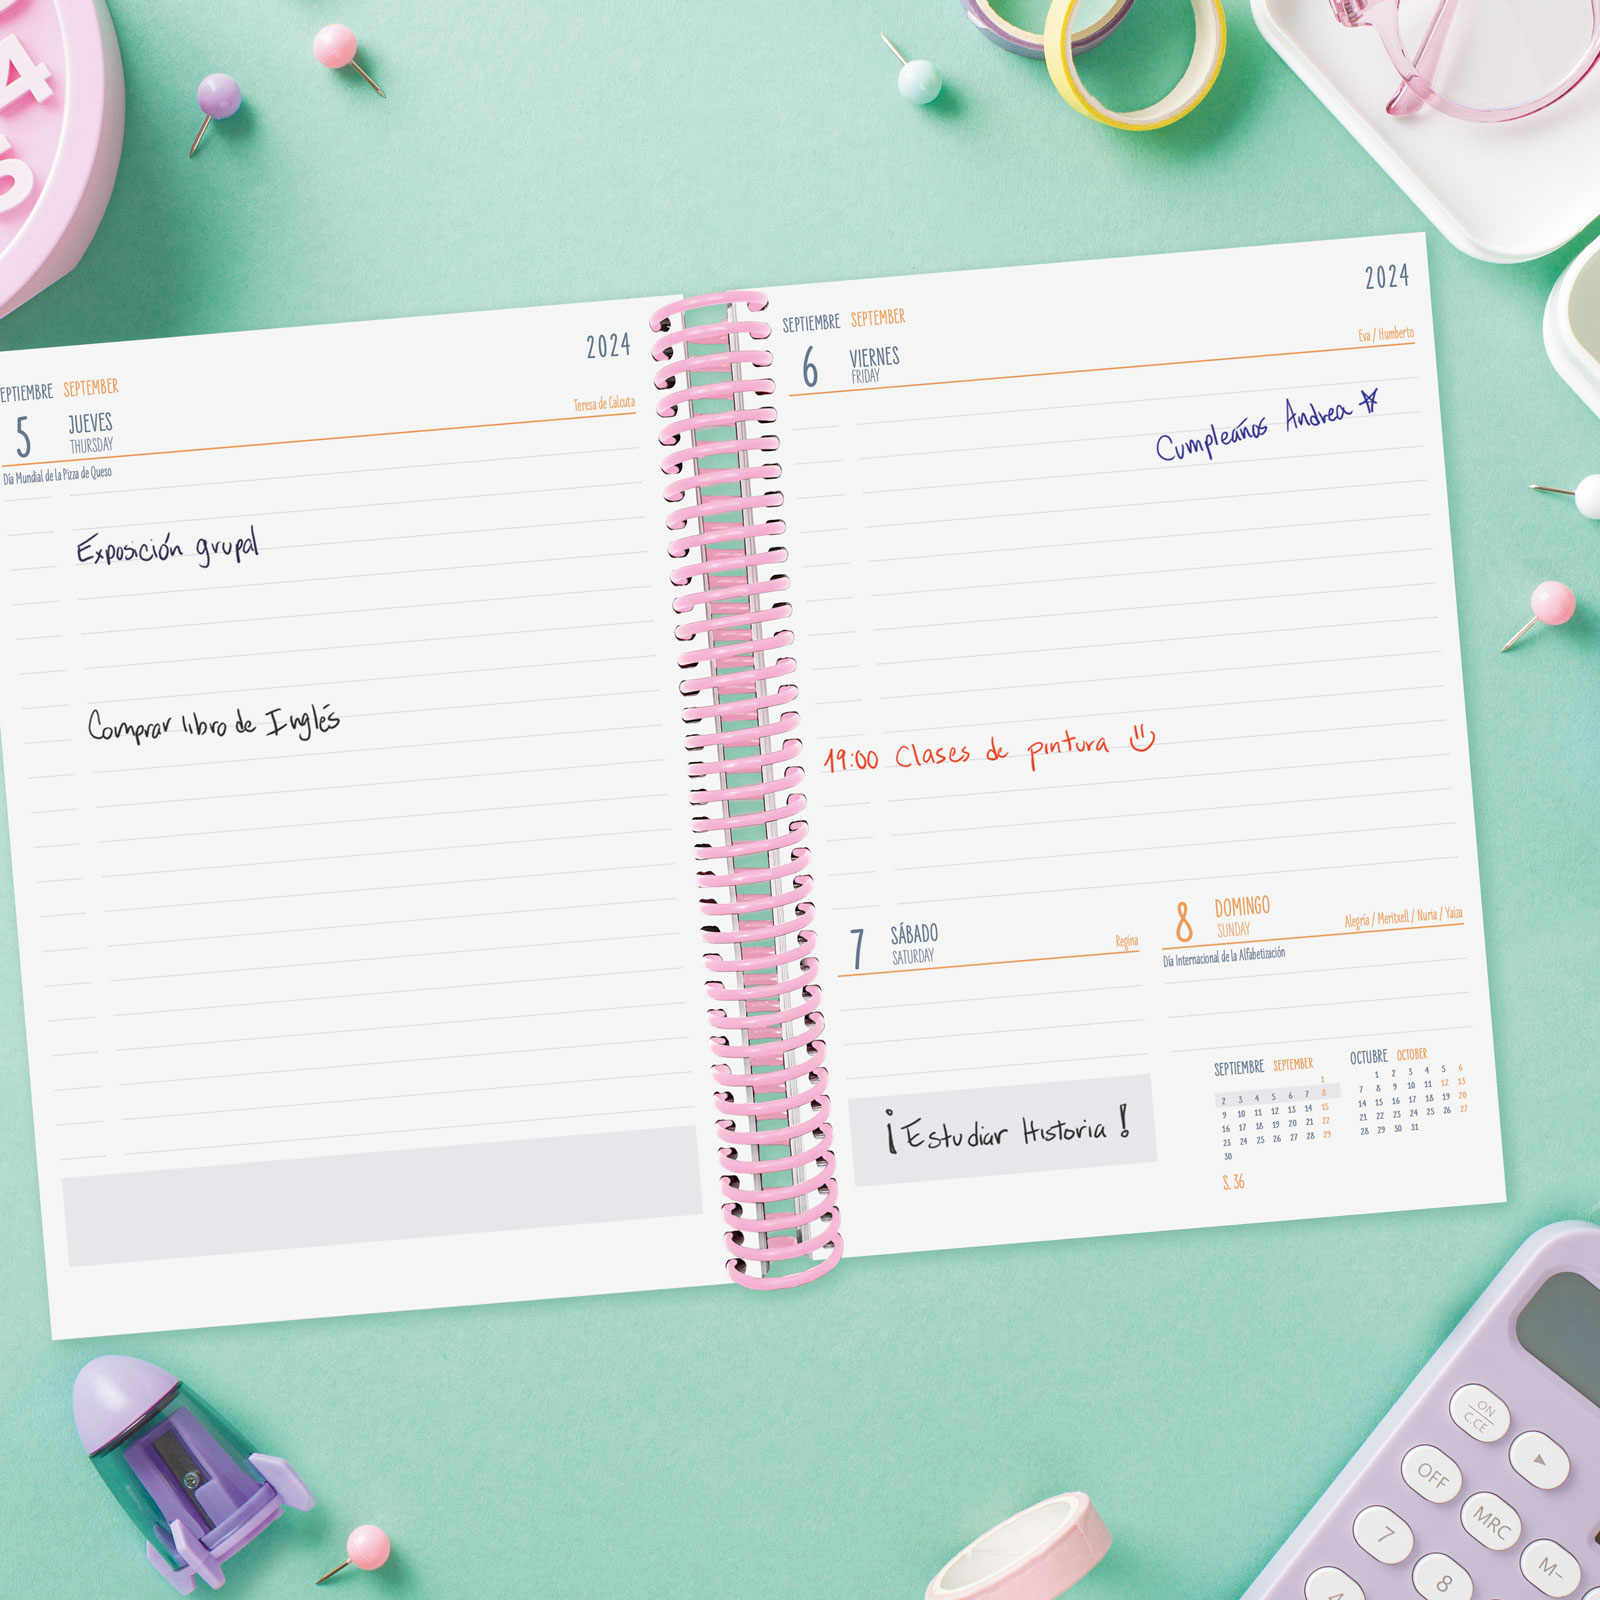 4
5
2024
EPTIEMBRE SEPTEMBER
5 JUEVES
THURSDAY
Teresa de Calcuta
Día Mundial de la Pizza de Queso
Exposición grupal
Comprar libro de Inglés
2024
SEPTIEMBRE SEPTEMBER
6 VIERNES
FRIDAY
Eva / Humberto
Cumpleaños Andrea
19:00 Clases de pintura
7 SÁBADO
SATURDAY
Regina
¡Estudiar Historia!
8 DOMINGO
SUNDAY
Alegría / Meritxell / Nuria / Yaiza
Día Internacional de la Alfabetización
SEPTIEMBRE SEPTEMBER
1
2 3 4 5 6 7 8
9 10 11 12 13 14 15
16 17 18 19 20 21 22
23 24 25 26 27 28 29
30
S. 36
OCTUBRE OCTOBER
1 2 3 4 5 6
7 8 9 10 11 12 13
14 15 16 17 18 19 20
21 22 23 24 25 26 27
28 29 30 31
ON
C.CE
OFF
MRC
7
M-
8
4